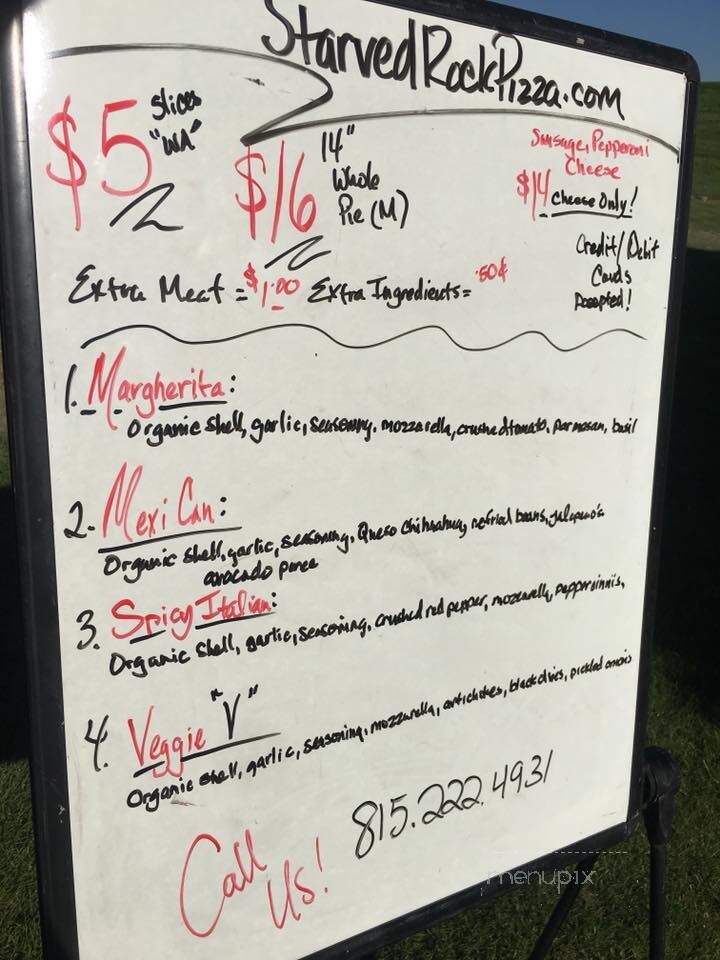 StarvedRockPizza.com
$5 Slices
$16 14" Whole Pie (M)
Sausage, Pepperoni
Cheese
$14 Cheese Only!
Credit/Debit
Cards
Accepted!
Extra Meat = $1.00 Extra Ingredients = .50¢
1. Margherita:
Organic shell, garlic, seasoning, mozzarella, crushed tomato, parmesan, basil
2. Mexi Can:
Organic shell, garlic, seasoning, Queso Chihuahua, refried beans, jalapeno's
avocado puree
3. Spicy Italian:
Organic shell, garlic, seasoning, crushed red pepper, mozzarella, pepperoinnis,
4. Veggie "V"
Organic shell, garlic, seasoning, mozzarella, artichokes, black olives, pickled onions
Call
Us! 815.222.4931
menupix